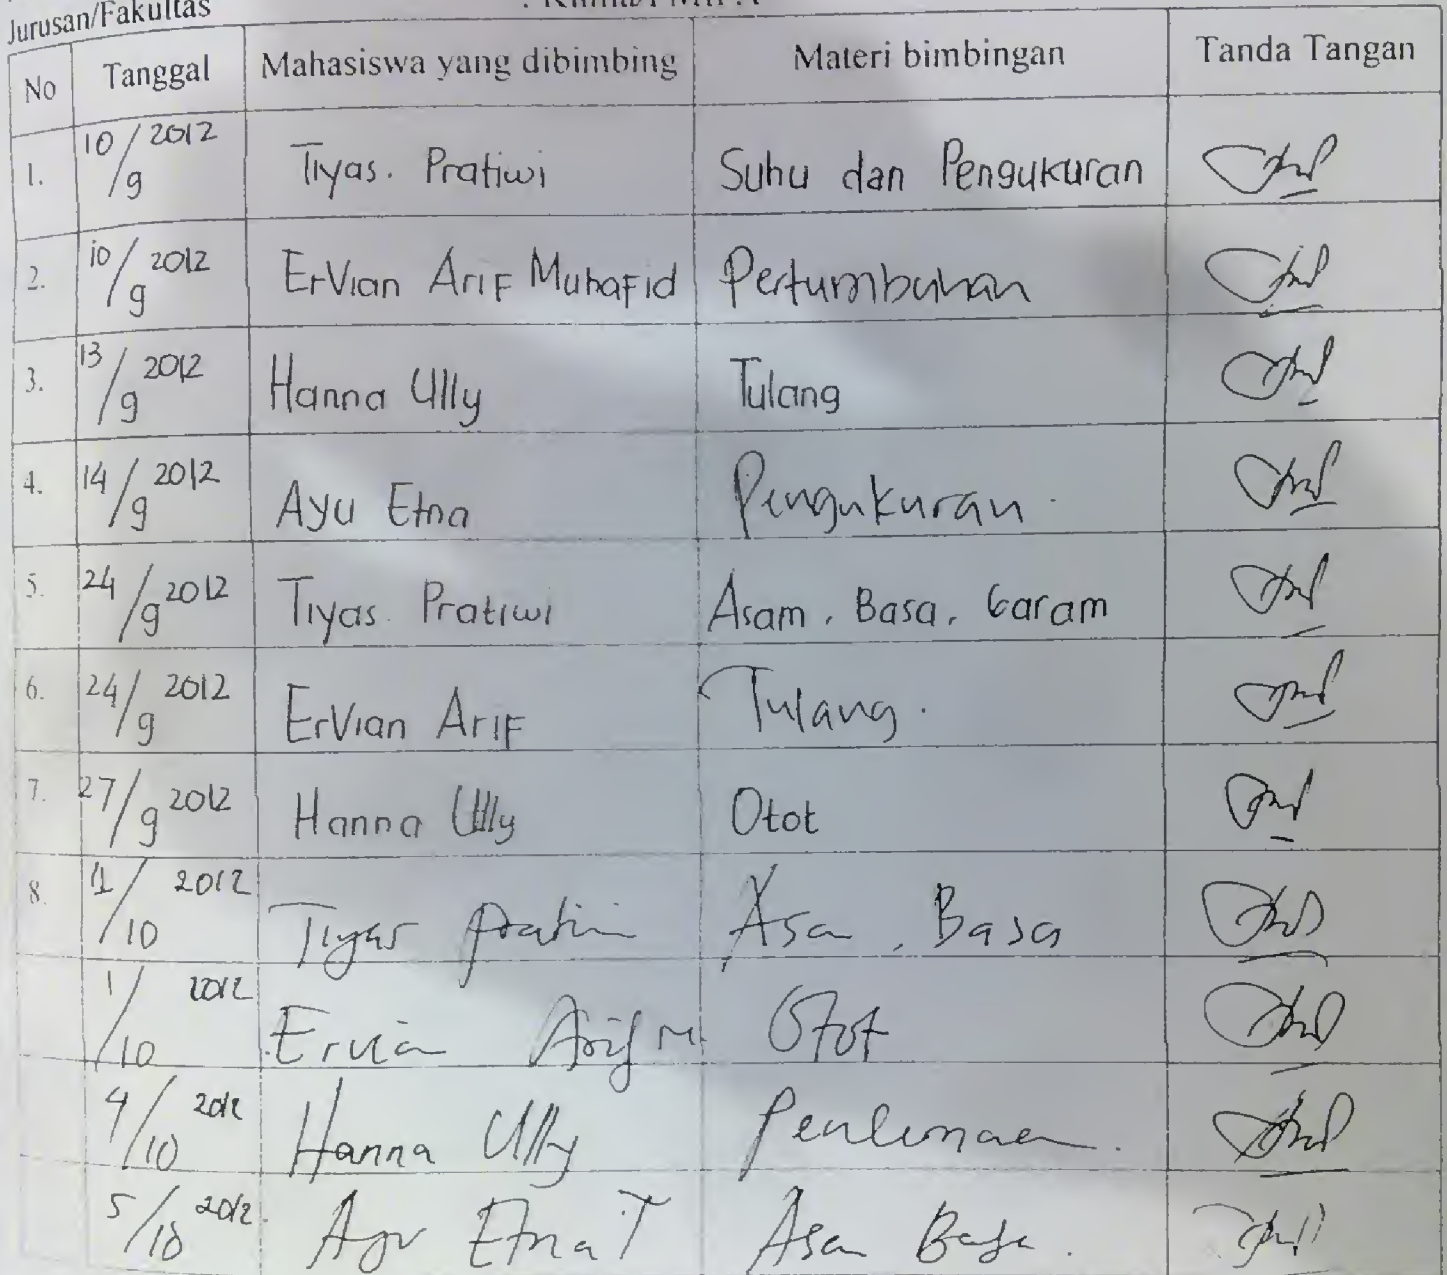 Jurusan/Fakultas
No Tanggal Mahasiswa yang dibimbing Materi bimbingan Tanda Tangan
1. 10/9 2012 Tiyas. Pratiwi Suhu dan Pengukuran
2. 10/9 2012 Ervian Arif Muhafid Pertumbuhan
3. 13/9 2012 Hanna Ully Tulang
4. 14/9 2012 Ayu Etna Pengukuran.
5. 24/9 2012 Tiyas. Pratiwi Asam, Basa, Garam
6. 24/9 2012 Ervian Arif Tulang.
7. 27/9 2012 Hanna Ully Otot
8. 2012 Tiyas Basa
1/10 2012 Arif M Otot
4/10 2012 Hanna Ully
5/10 2012. Etna T